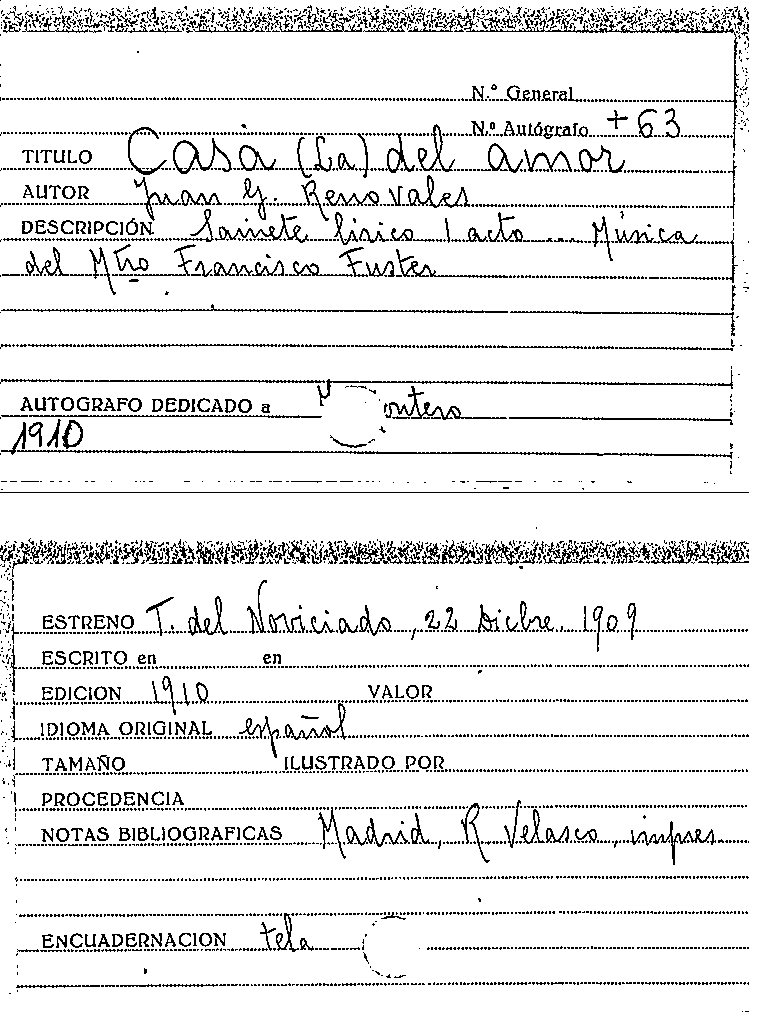 N.º General
N.º Autógrafo +63
TITULO Casa (La) del amor
AUTOR Juan G. Renovales
DESCRIPCIÓN Sainete lírico 1 acto ... Música
del Mtro Francisco Fuster
AUTOGRAFO DEDICADO a
1910
ESTRENO T. del Noviciado, 22 Dicbre. 1909
ESCRITO en en
EDICION 1910 VALOR
IDIOMA ORIGINAL español
TAMAÑO ILUSTRADO POR
PROCEDENCIA
NOTAS BIBLIOGRAFICAS Madrid, R Velasco, impres.
ENCUADERNACION tela